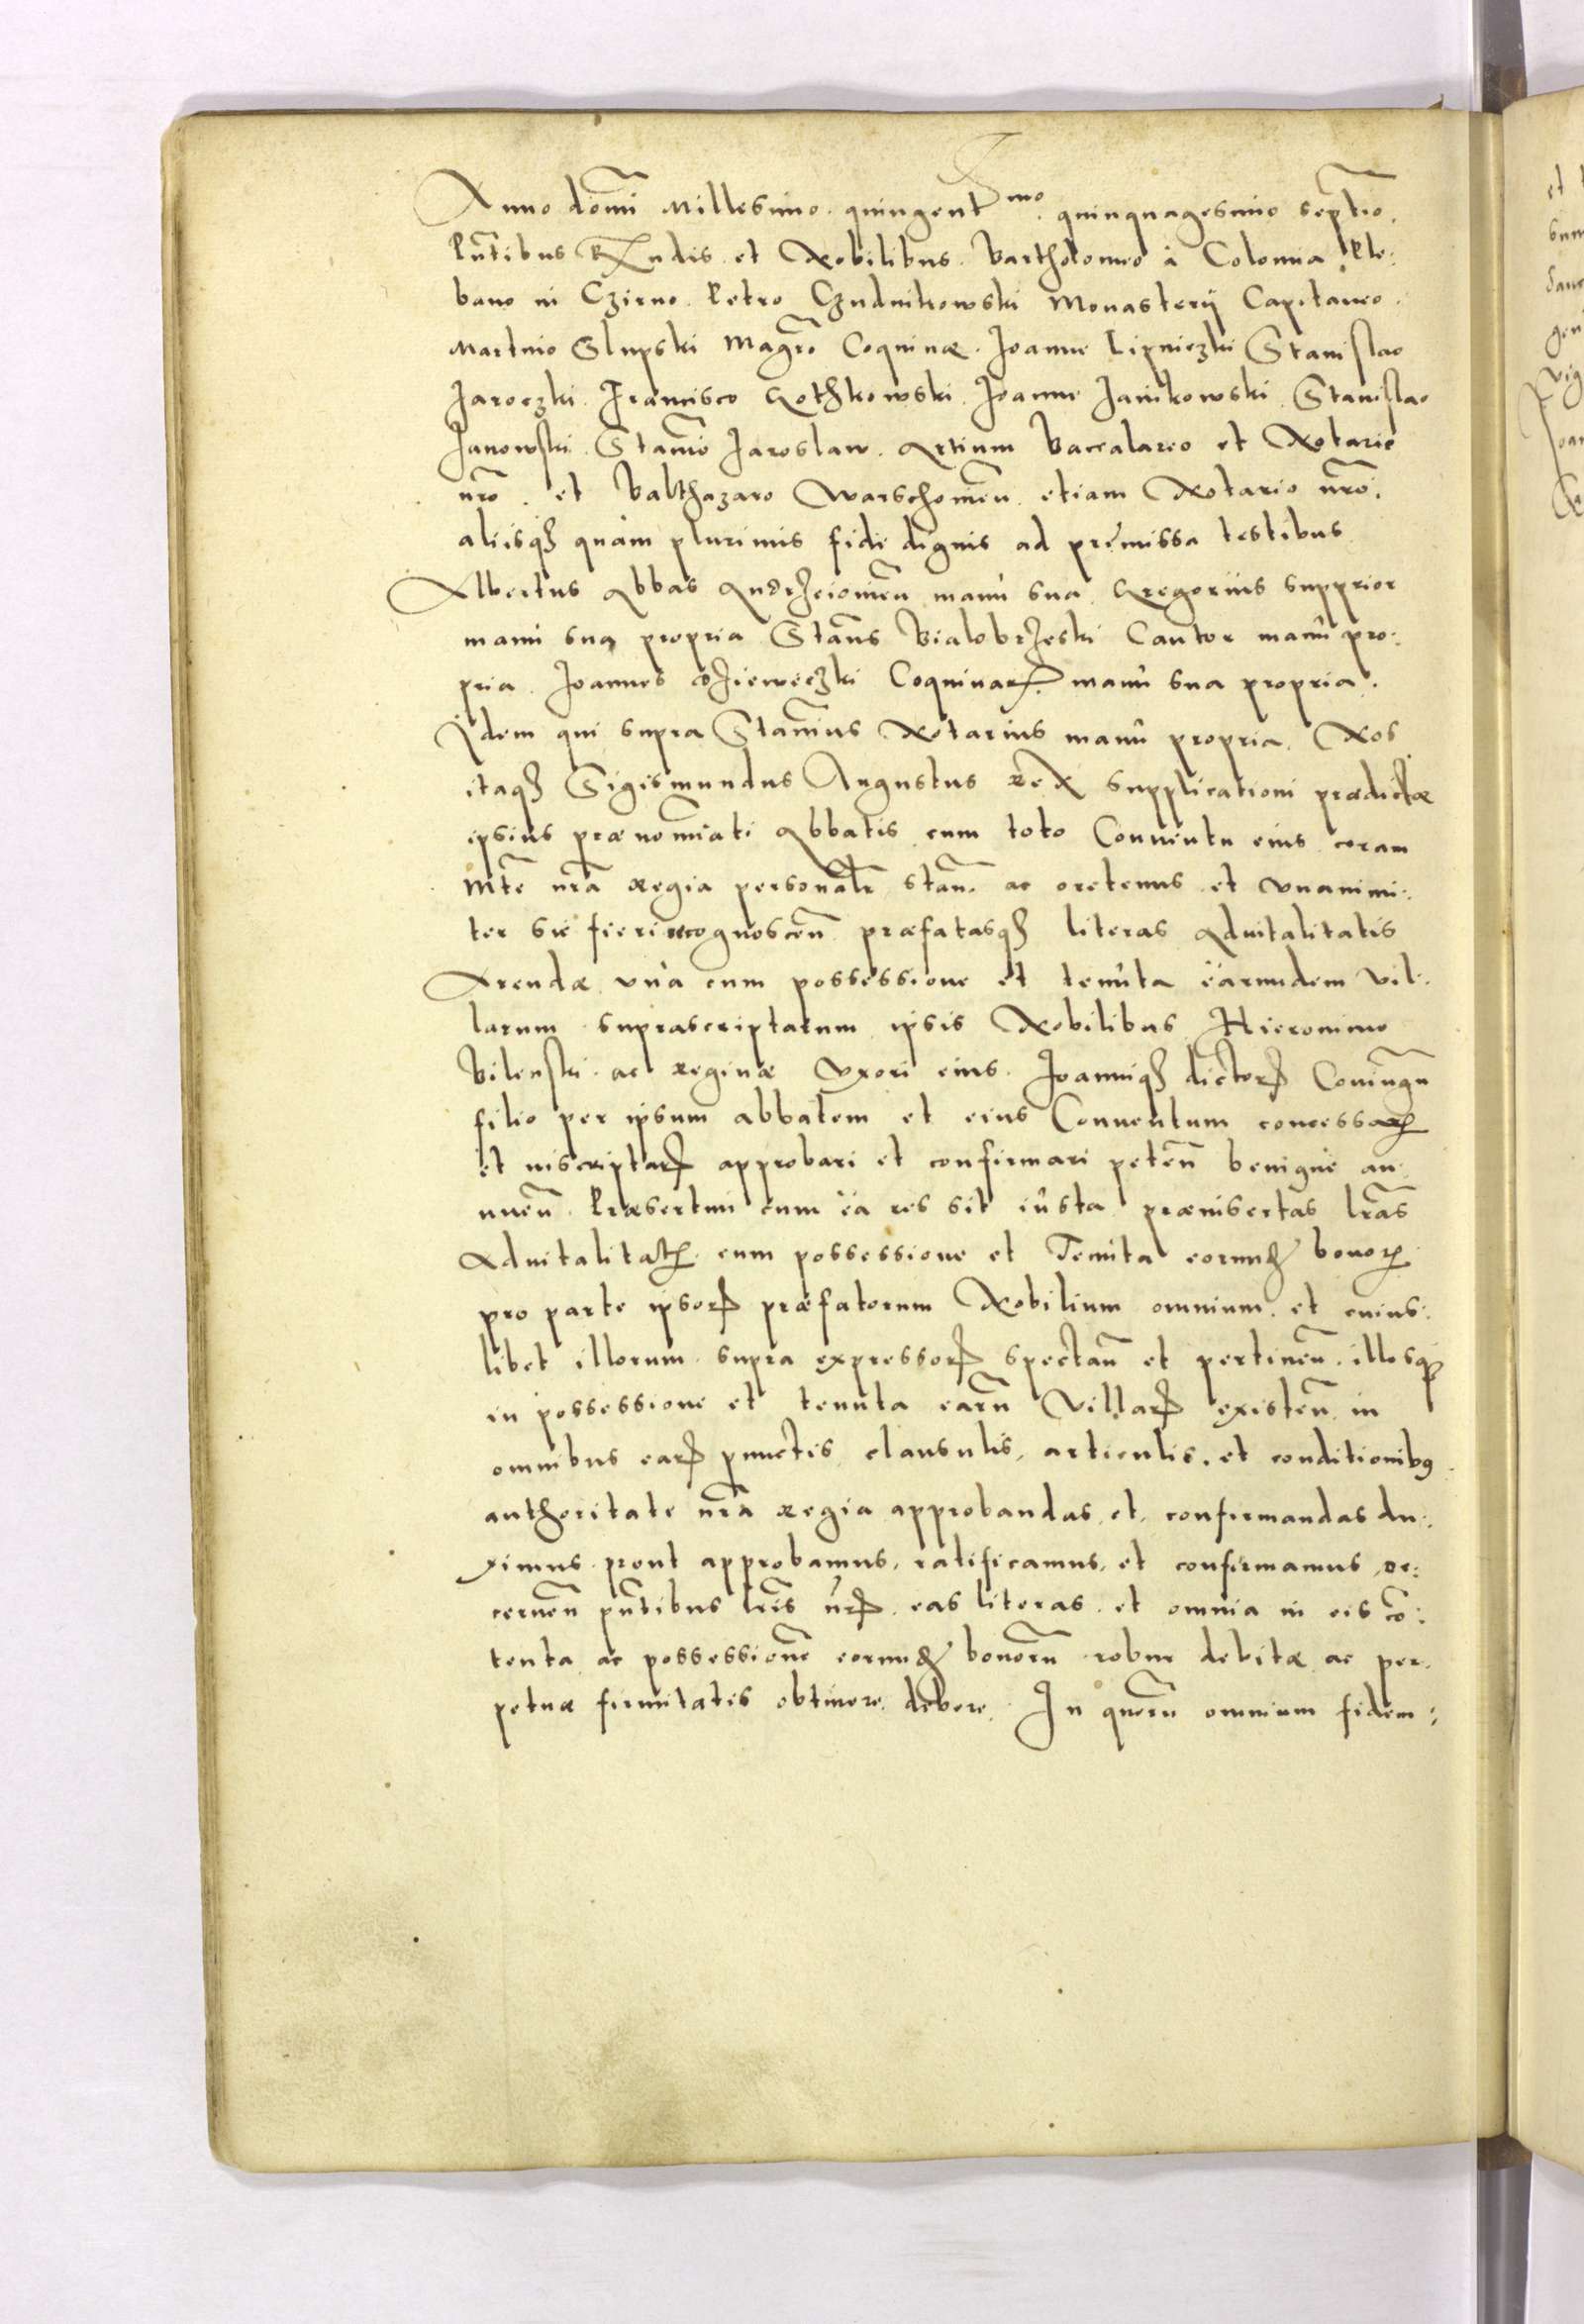 Anno domı̃ Millesimo quingent^mo. quinquagesimo septı̃o.
Pñtibus Rx̃ndis et Nobilibus Bartholomeo à Colonia Ple:
bano in Czirno Petro Czudnikowski Monasterij Capitaneo.
Martino Slupski Magr̃o Coquinæ. Joanne Lipniczki Stanislao
Jaroczki Francisco Rothkowski Joanne Janikowski Stanislao
Janowski Stanı̃o Jaroslaw Artium Baccalareo et Notario
nr̃o et Balthazaro Warschouieñ etiam Notario nr̃o.
aliisqʒ quàm plurimis fide dignis ad premissa testibus
Albertus Abbas Andrzeiouieñ manû sua Gregorius supprior
manû sua propria Stañs Bialobrzeski Cantor manû pro:
pria. Joannes Coquinarꝝ manû sua propria.
Idem qui supra Stanı̃us Notarius manû propria. Nos
itaqʒ Sigismundus Augustus Rex supplicationi prædictæ
ipsius prænomı̃ati Abbatis cum toto Conuentu eius coram
Mt̃e nr̃a Regia personal̃r stañ. ac oretenus et vnanimi:
ter sic fieri recognosceñ præfatasqʒ literas Aduitalitatis
Arendæ vnà cum possessione et tenûta earundem vil:
larum suprascriptarum ipsis Nobilibus Hieronimo
Bilenski ac Reginæ Vxori eius Joanniqʒ dictorꝝ Coniugũ
filio per ipsum abbatem et eius Conuentum concessarꝝ
et inscriptarꝝ approbari et confirmari peteñ benignè an:
nueñ. Præsertim cum ea res sit iûsta præinsertas lr̃as
Aduitalitatꝝ cum possessione et Tenuta eorundꝫ bonoꝝ
pro parte ipsorꝝ præfatorum Nobilium omnium et cuius:
libet illorum supra expressorꝝ spectañ et pertineñ. illosqꝫ
in possessione et tenuta earũ Villarꝝ existeñ in
omnibus earꝝ punctis clausulis, articulis, et conditionibꝰ
authoritate nr̃a Regia approbandas et confirmandas du:
ximus prout approbamus, ratificamus, et confirmamus de:
cerneñ pñtibus lr̃is nr̃ꝝ eas literas et omnia in eis cõ:
tenta ac possessionẽ eorundꝫ bonorũ robur debitæ ac per:
petuæ firmitatis obtinere debere. In quorũ omnium fidem: